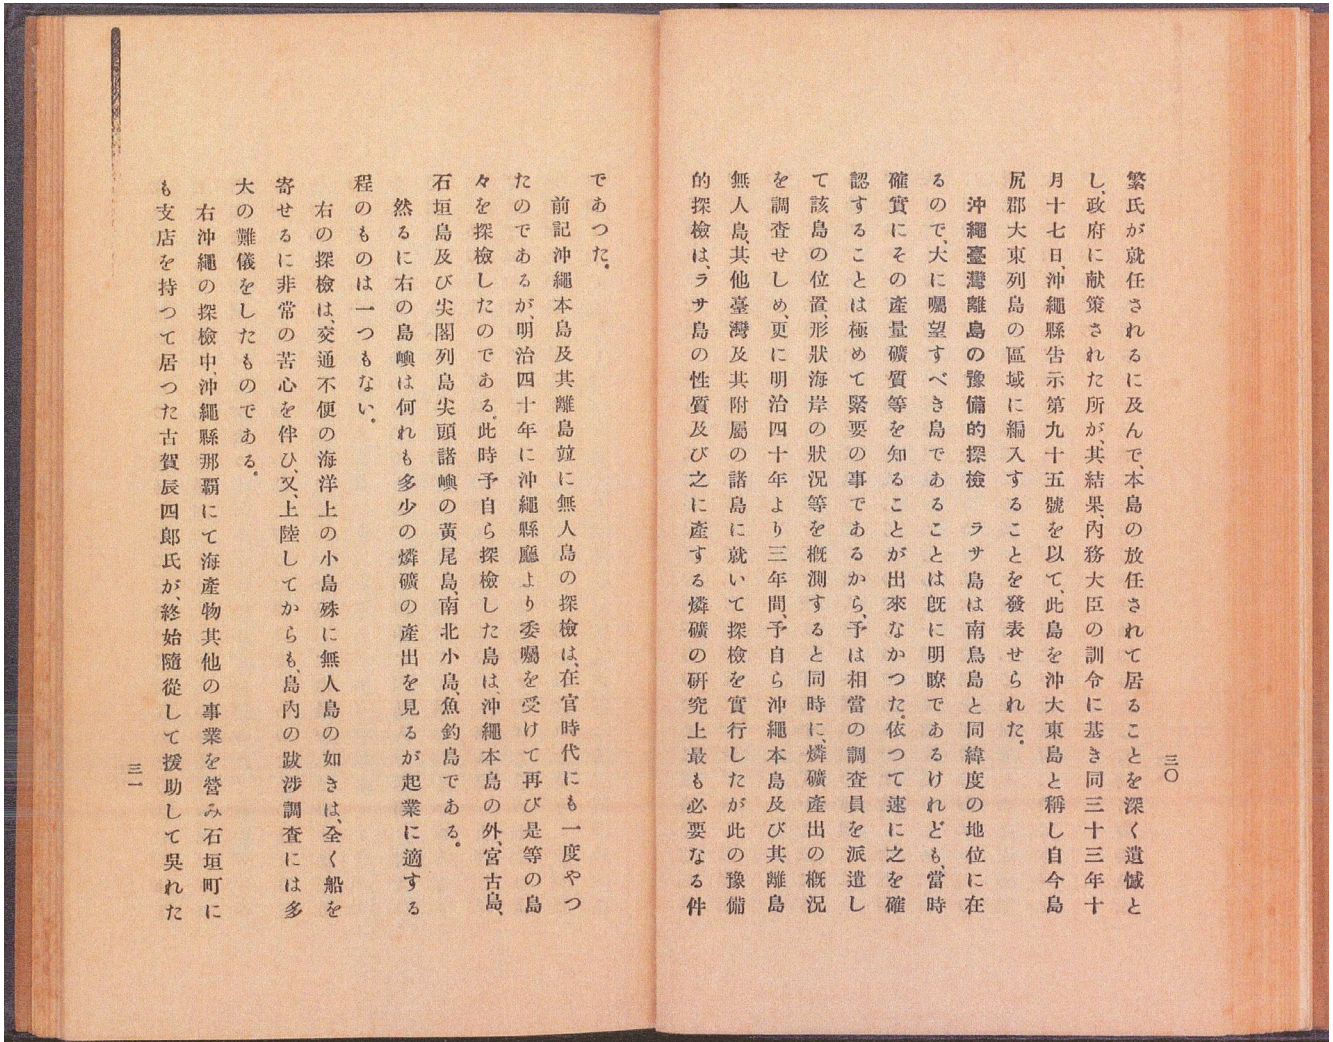 三〇
繁氏が就任されるに及んで、本島の放任されて居ることを深く遺憾と
し、政府に献策された所が、其結果、內務大臣の訓令に基き同三十三年十
月十七日、沖繩縣告示第九十五號を以て、此島を沖大東島と稱し自今島
尻郡大東列島の區域に編入することを發表せられた。
沖繩臺灣離島の豫備的探檢　ラサ島は南鳥島と同緯度の地位に在
るので、大に囑望すべき島であることは既に明瞭であるけれども、當時
確實にその產量礦質等を知ることが出來なかつた。依つて速に之を確
認することは極めて緊要の事であるから、予は相當の調査員を派遣し
て該島の位置、形狀海岸の狀況等を槪測すると同時に、燐礦產出の槪況
を調査せしめ、更に明治四十年より三年間、予自ら沖繩本島及び其離島
無人島、其他臺灣及其附屬の諸島に就いて探檢を實行したが此の豫備
的探檢は、ラサ島の性質及び之に產する燐礦の硏究上最も必要なる件
であつた。
前記沖繩本島及其離島竝に無人島の探檢は、在官時代にも一度やつ
たのであるが、明治四十年に沖繩縣廳より委囑を受けて再び是等の島
々を探檢したのである。此時予自ら探檢した島は、沖繩本島の外、宮古島、
石垣島及び尖閣列島尖頭諸嶼の黃尾島、南北小島、魚釣島である。
然るに右の島嶼は何れも多少の燐礦の產出を見るが起業に適する
程のものは一つもない。
右の探檢は、交通不便の海洋上の小島殊に無人島の如きは、全く船を
寄せるに非常の苦心を伴ひ、又、上陸してからも、島內の跋涉調査には多
大の難儀をしたものである。
右沖繩の探檢中、沖繩縣那覇にて海產物其他の事業を營み石垣町に
も支店を持つて居つた古賀辰四郞氏が、終始隨從して援助して吳れた
三一